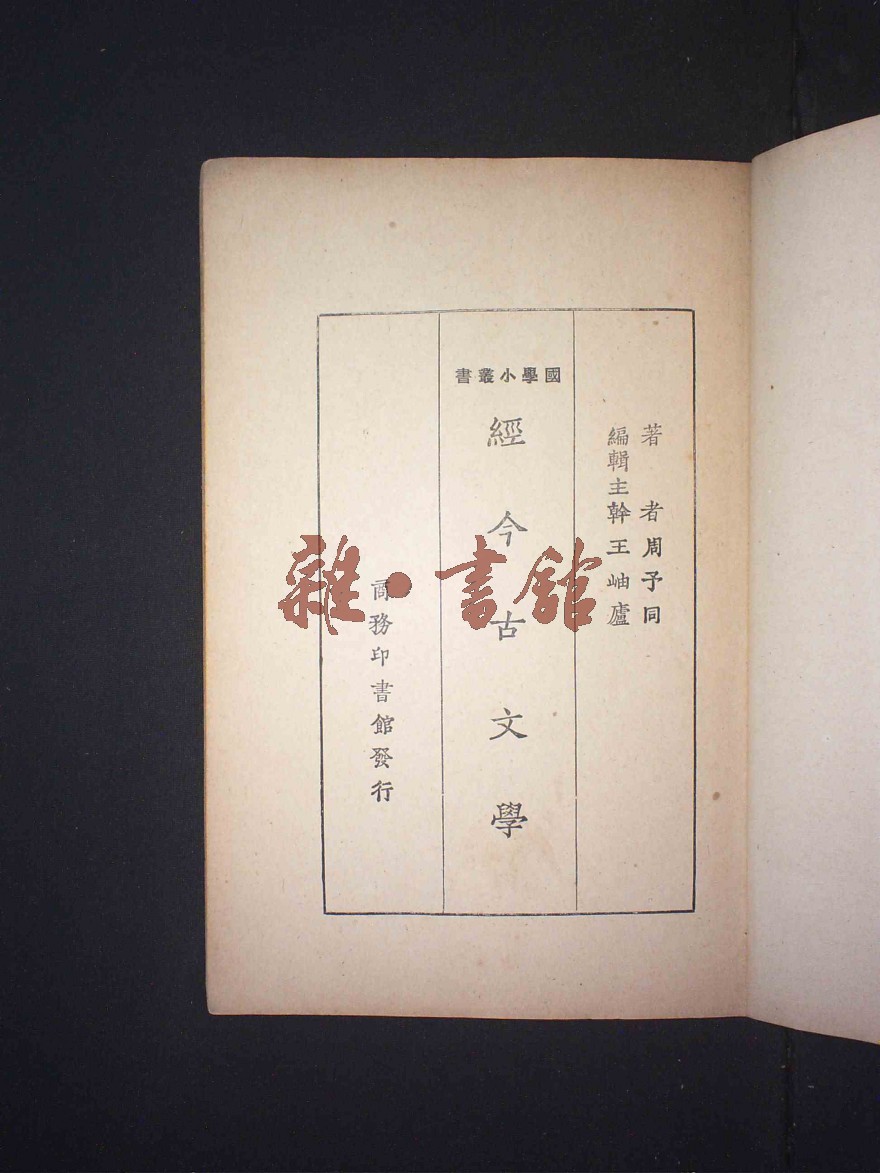 著者周予同
編輯主幹王岫廬
國學小叢書
經今古文學
商務印書館發行
雜·書館